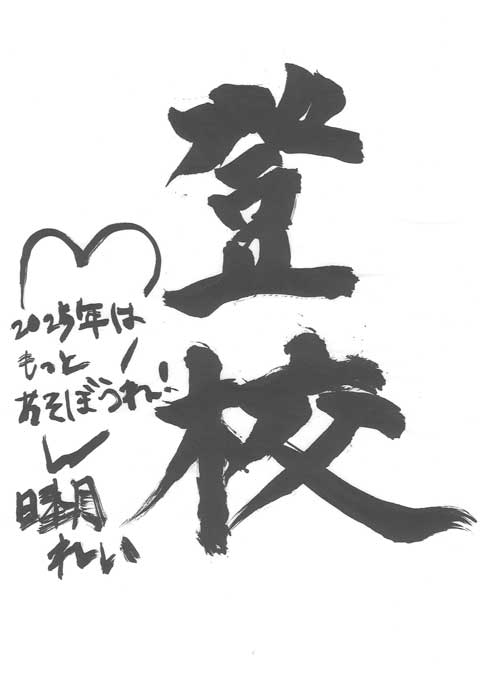 登校
2025年は
もっと
あそぼうれ!
晴月
れい